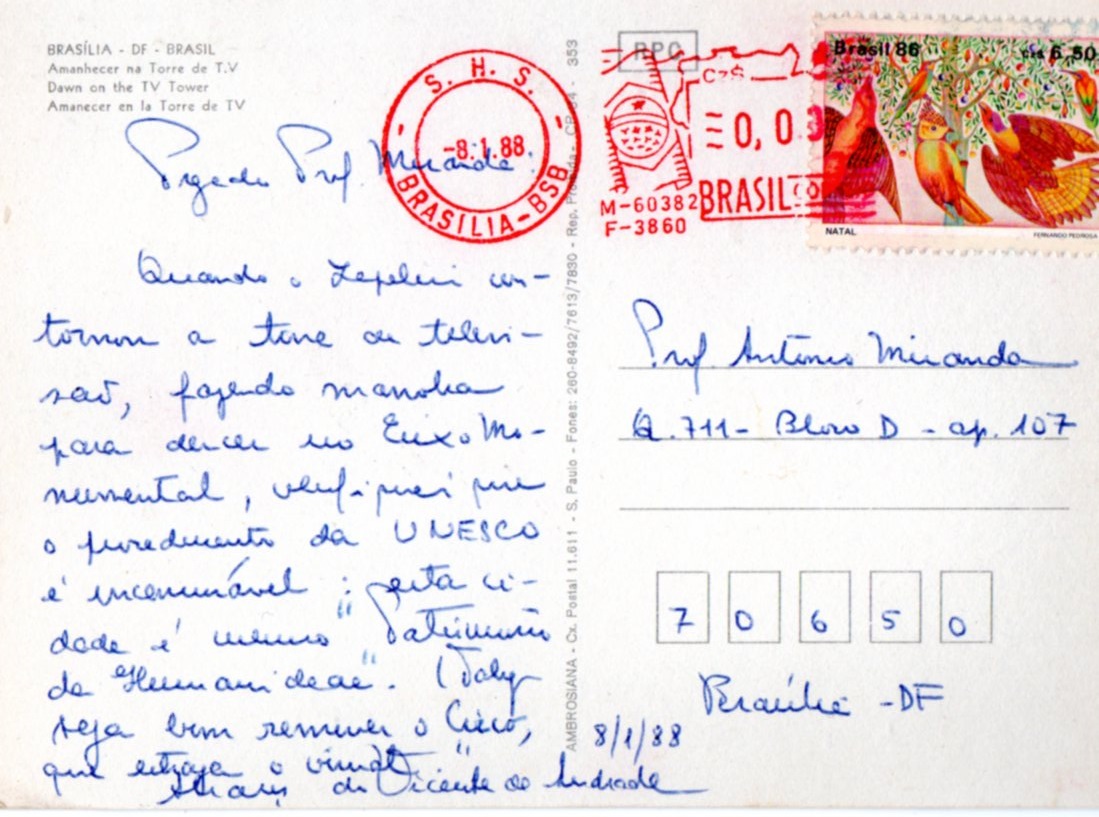 BRASÍLIA - DF - BRASIL
Amanhecer na Torre de T.V
Dawn on the TV Tower
Amanecer en la Torre de TV
Prof. Miranda:
Quando o Zepelin con-
tornou a torre de televi-
saõ, fazendo manobra
para descer no Eixo Mo-
numental, verifiquei que
o procedimento da UNESCO
é incensurável: esta ci-
dade é mesmo "Patrimônio
da Humanidade". (Talvez
seja bom remover o Circo,
que estraga o visual.
Abraços do Vicente de Andrade
AMBROSIANA - Cx. Postal 11.611 - S. Paulo - Fones: 260-8492/7613/7830 - Rep. 353
S. H. S.
-8.1.88
BRASÍLIA-BSB
RPC
Cz$
0,0
M-60382
F-3860
BRASIL
Brasil 86
cz$ 6,50
NATAL
FERNANDO PEDROSA
Prof Antônio Miranda
Q.711- Bloco D - ap. 107
70650
Brasília -DF
8/1/88